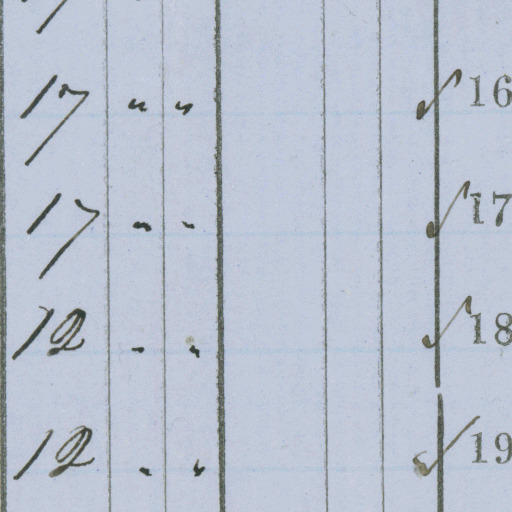 17 " " ✓ 16
17 " " ✓ 17
12 " " ✓ 18
12 " " ✓ 19